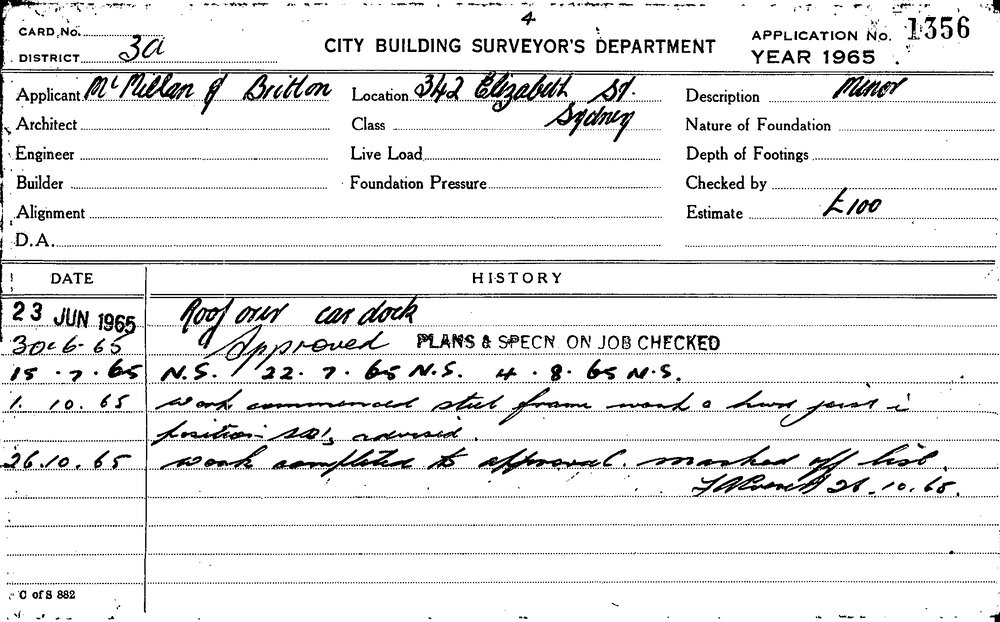 4
CARD No.
DISTRICT 3a
CITY BUILDING SURVEYOR'S DEPARTMENT
APPLICATION No. 1356
YEAR 1965
Applicant McMillan & Britton Location 342 Elizabeth St. Description Minor
Architect Class Sydney Nature of Foundation
Engineer Live Load Depth of Footings
Builder Foundation Pressure Checked by
Alignment Estimate £100
D.A.
DATE HISTORY
23 JUN 1965 Roof over car dock
30-6-65 Approved PLANS & SPECN ON JOB CHECKED
15.7.65 N.S. 22.7.65 N.S. 4.8.65 N.S.
1.10.65 work commenced steel frame work & hwd joist i
position advised.
26.10.65 work completed to approval. marked off list.
26.10.65.
C of S 882